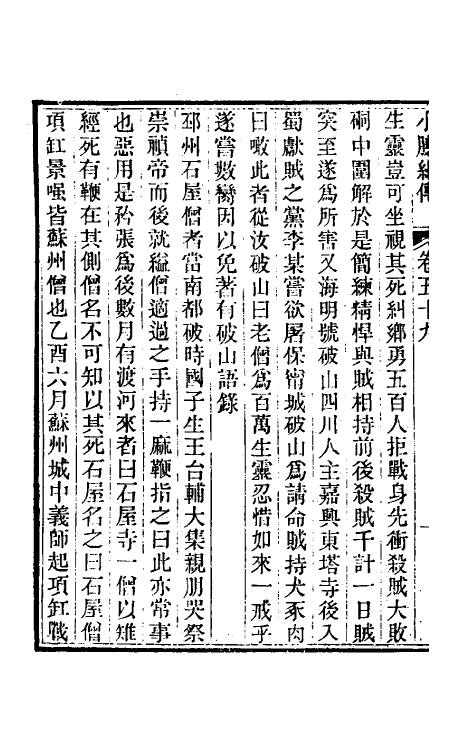 小腆紀傳　卷五十九　一
生靈豈可坐視其死糾鄉勇五百人拒戰身先衝殺賊大敗
硐中圍解於是簡練精悍與賊相持前後殺賊千計一日賊
突至遂為所害又海明號破山四川人主嘉興東塔寺後入
蜀獻賊之黨李某嘗欲屠保甯城破山為請命賊持犬豕肉
曰噉此者從汝破山曰老僧為百萬生靈忍惜如來一戒乎
遂嘗數臠因以免著有破山語錄
邳州石屋僧者當南都破時國子生王台輔大集親朋哭祭
崇禎帝而後就縊僧適過之手持一麻鞭指之曰此亦常事
也惡用是矜張為後數月有渡河來者曰石屋寺一僧以雉
經死有鞭在其側僧名不可知以其死石屋名之曰石屋僧
項缸景嘿皆蘇州僧也乙酉六月蘇州城中義師起項缸戰